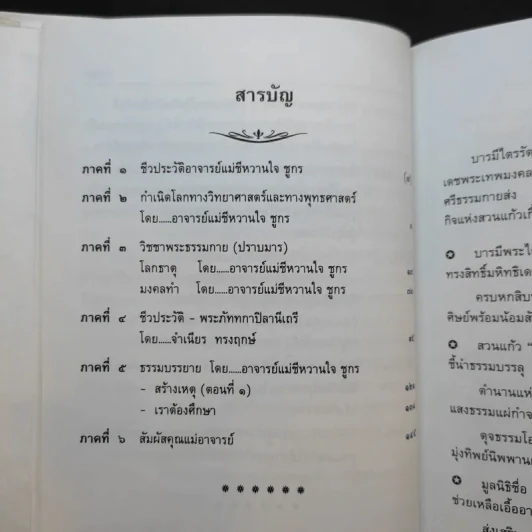 สารบัญ
ภาคที่ ๑ ชีวประวัติอาจารย์แม่ชีหวานใจ ชูกร
ภาคที่ ๒ กำเนิดโลกทางวิทยาศาสตร์และทางพุทธศาสตร์
โดย.....อาจารย์แม่ชีหวานใจ ชูกร
ภาคที่ ๓ วิชชาพระธรรมกาย (ปราบมาร)
โลกธาตุ โดย.....อาจารย์แม่ชีหวานใจ ชูกร
มงคลทำ โดย.....อาจารย์แม่ชีหวานใจ ชูกร
ภาคที่ ๔ ชีวประวัติ - พระภัททกาปิลานีเถรี
โดย.....จำเนียร ทรงฤกษ์
ภาคที่ ๕ ธรรมบรรยาย โดย....อาจารย์แม่ชีหวานใจ ชูกร
- สร้างเหตุ (ตอนที่ ๑)
- เราต้องศึกษา
ภาคที่ ๖ สัมผัสคุณแม่อาจารย์
บารมีไตรรัต
เดชพระเทพมงคล
ศรีธรรมกายส่ง
กิจแห่งสวนแก้วเกื้
บารมีพระไ
ทรงสิทธิ์มหิทธิเด
ครบหกสิบ
ศิษย์พร้อมน้อมสั
สวนแก้ว "
ชี้นำธรรมบรรลุ
ตำนานแห่
แสงธรรมแผ่กำจ
ดุจธรรมโอ
มุ่งทิพย์นิพพาน
มูลนิธิชื่อ
ช่วยเหลือเอื้ออา